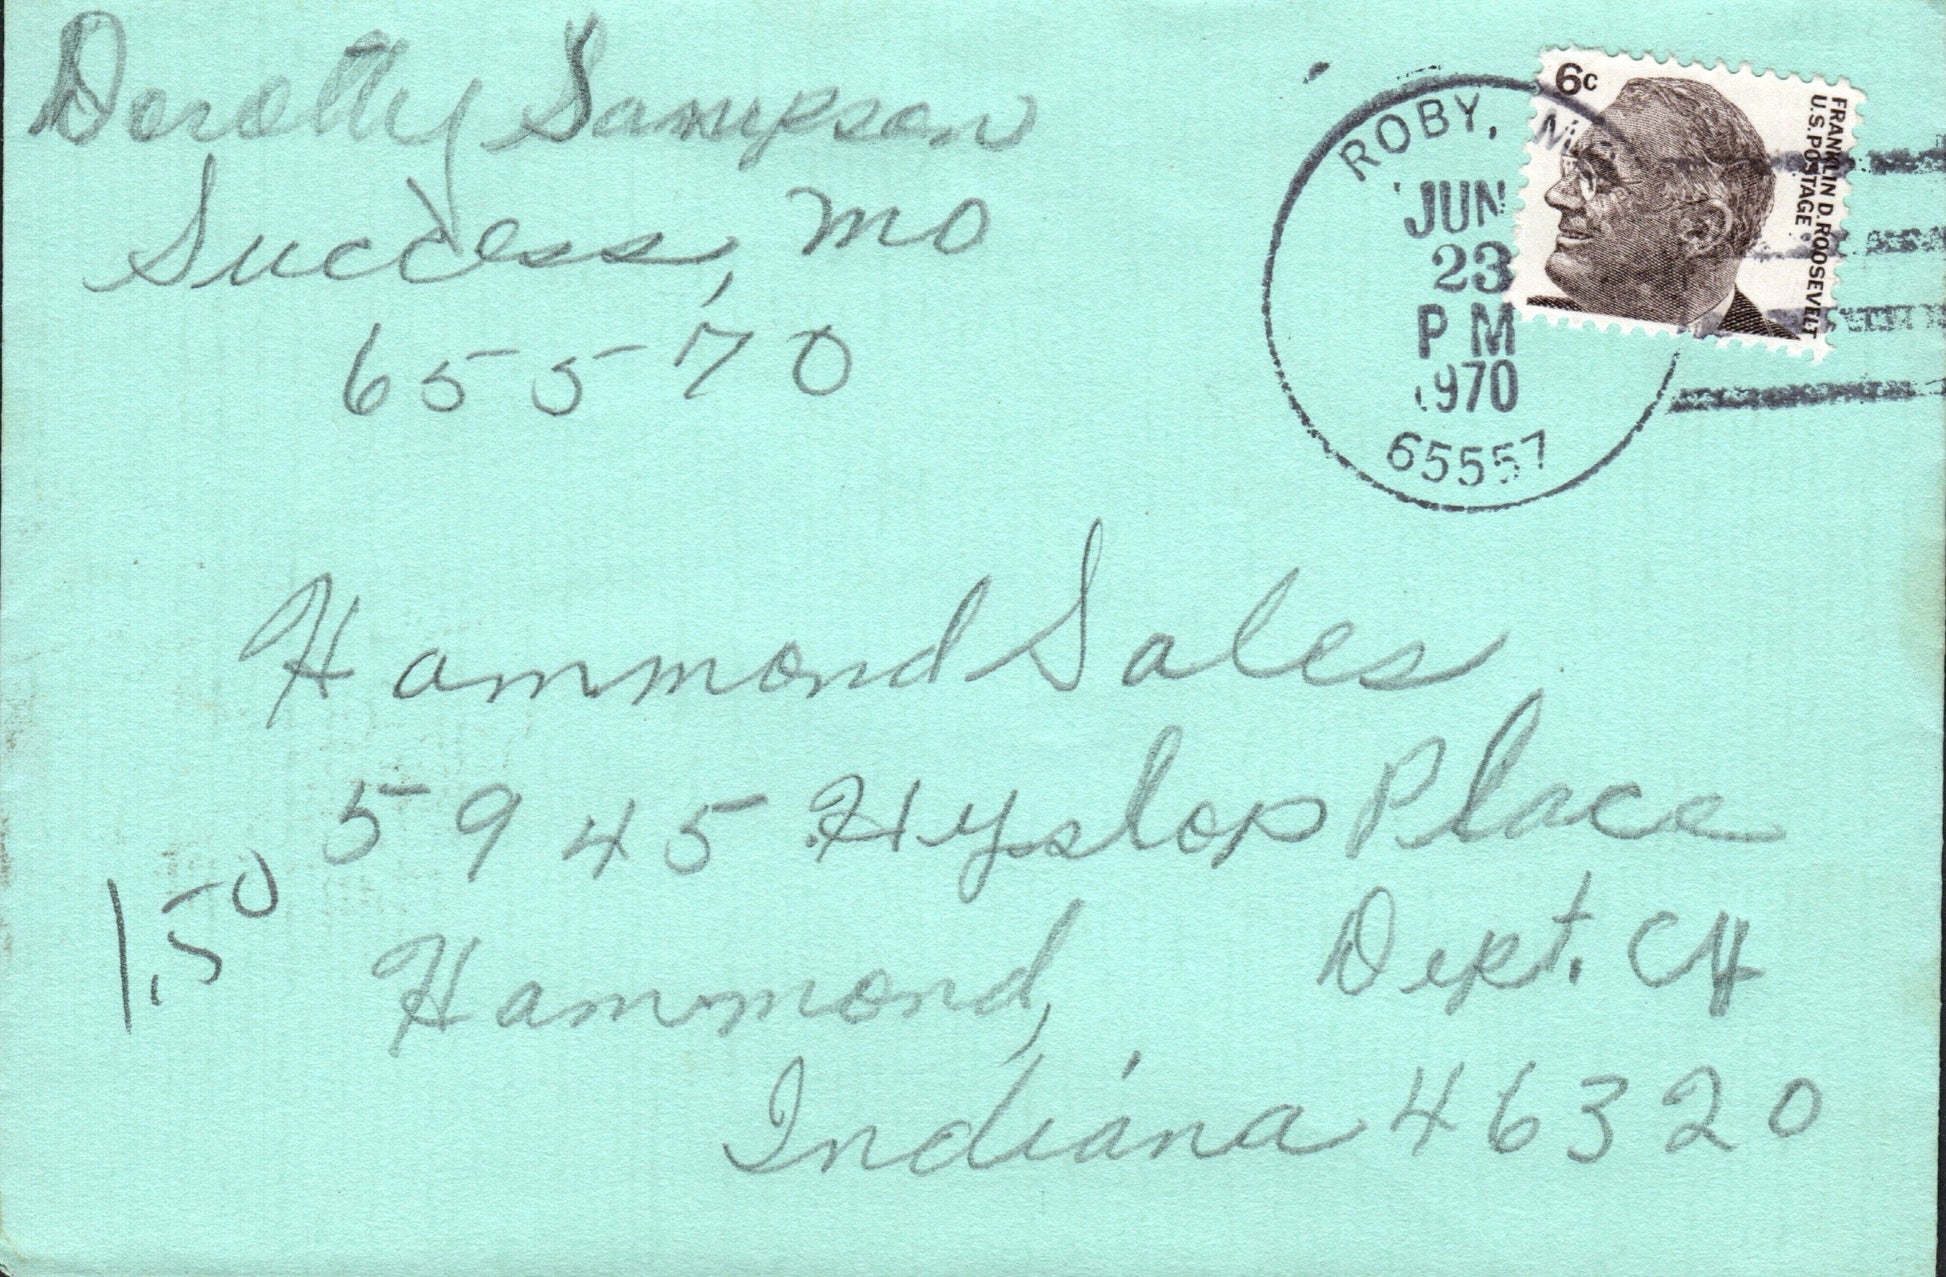 Dorothy Sampson
Success, Mo
65570
6c
FRANKLIN D. ROOSEVELT
U.S. POSTAGE
ROBY,
JUN
23
PM
1970
65557
Hammond Sales
5945 Hyslop Place
1.50
Dept. CH
Hammond,
Indiana 46320